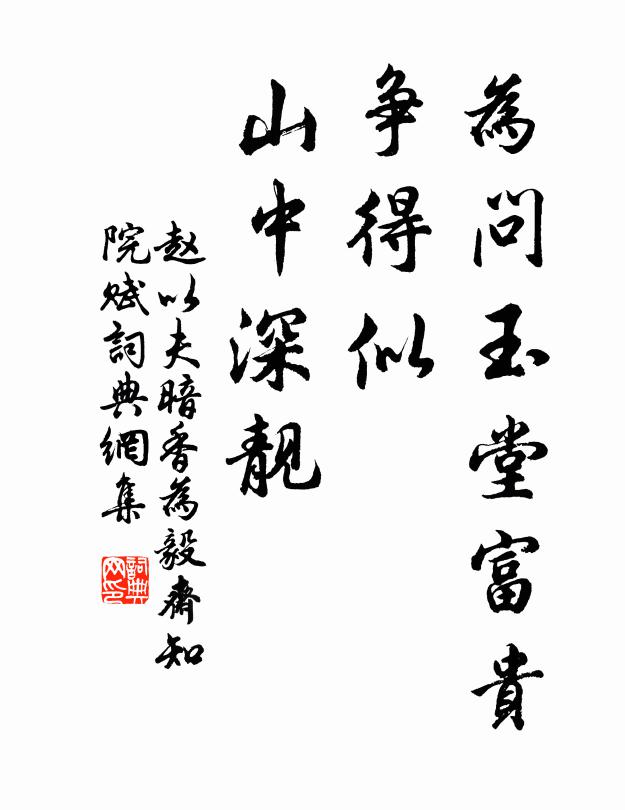 為問玉堂富貴
争得似
山中深靚
赵以夫暗香為毅齋知
院賦詞典網集
詞典网印